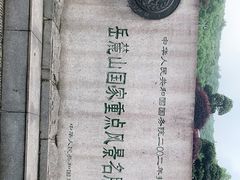 中华人民共和国国务院二〇〇二年
岳麓山国家重点风景名
中华人民共和国